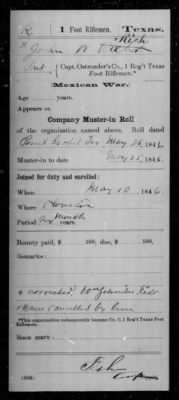 R | 1 Foot Riflemen. | Texas.
x John W
Pvt { Capt. Ostrander's Co., 1 Reg't Texas
Foot Riflemen.*
Mexican War.
Age years.
Appears on
Company Muster-in Roll
of the organization named above. Roll dated
Point Isabel Tex May 25, 1846
Muster-in to date May 25, 1846.
Joined for duty and enrolled:
When May 10, 1846
Where Houston
Period months
Bounty paid, $ 100; due, $ 100.
Remarks:
x corrected.
Name cancelled by line
*This organization subsequently became Co. C, 1 Reg't Texas Foot
Riflemen.
Book mark:
(636) Copyist.